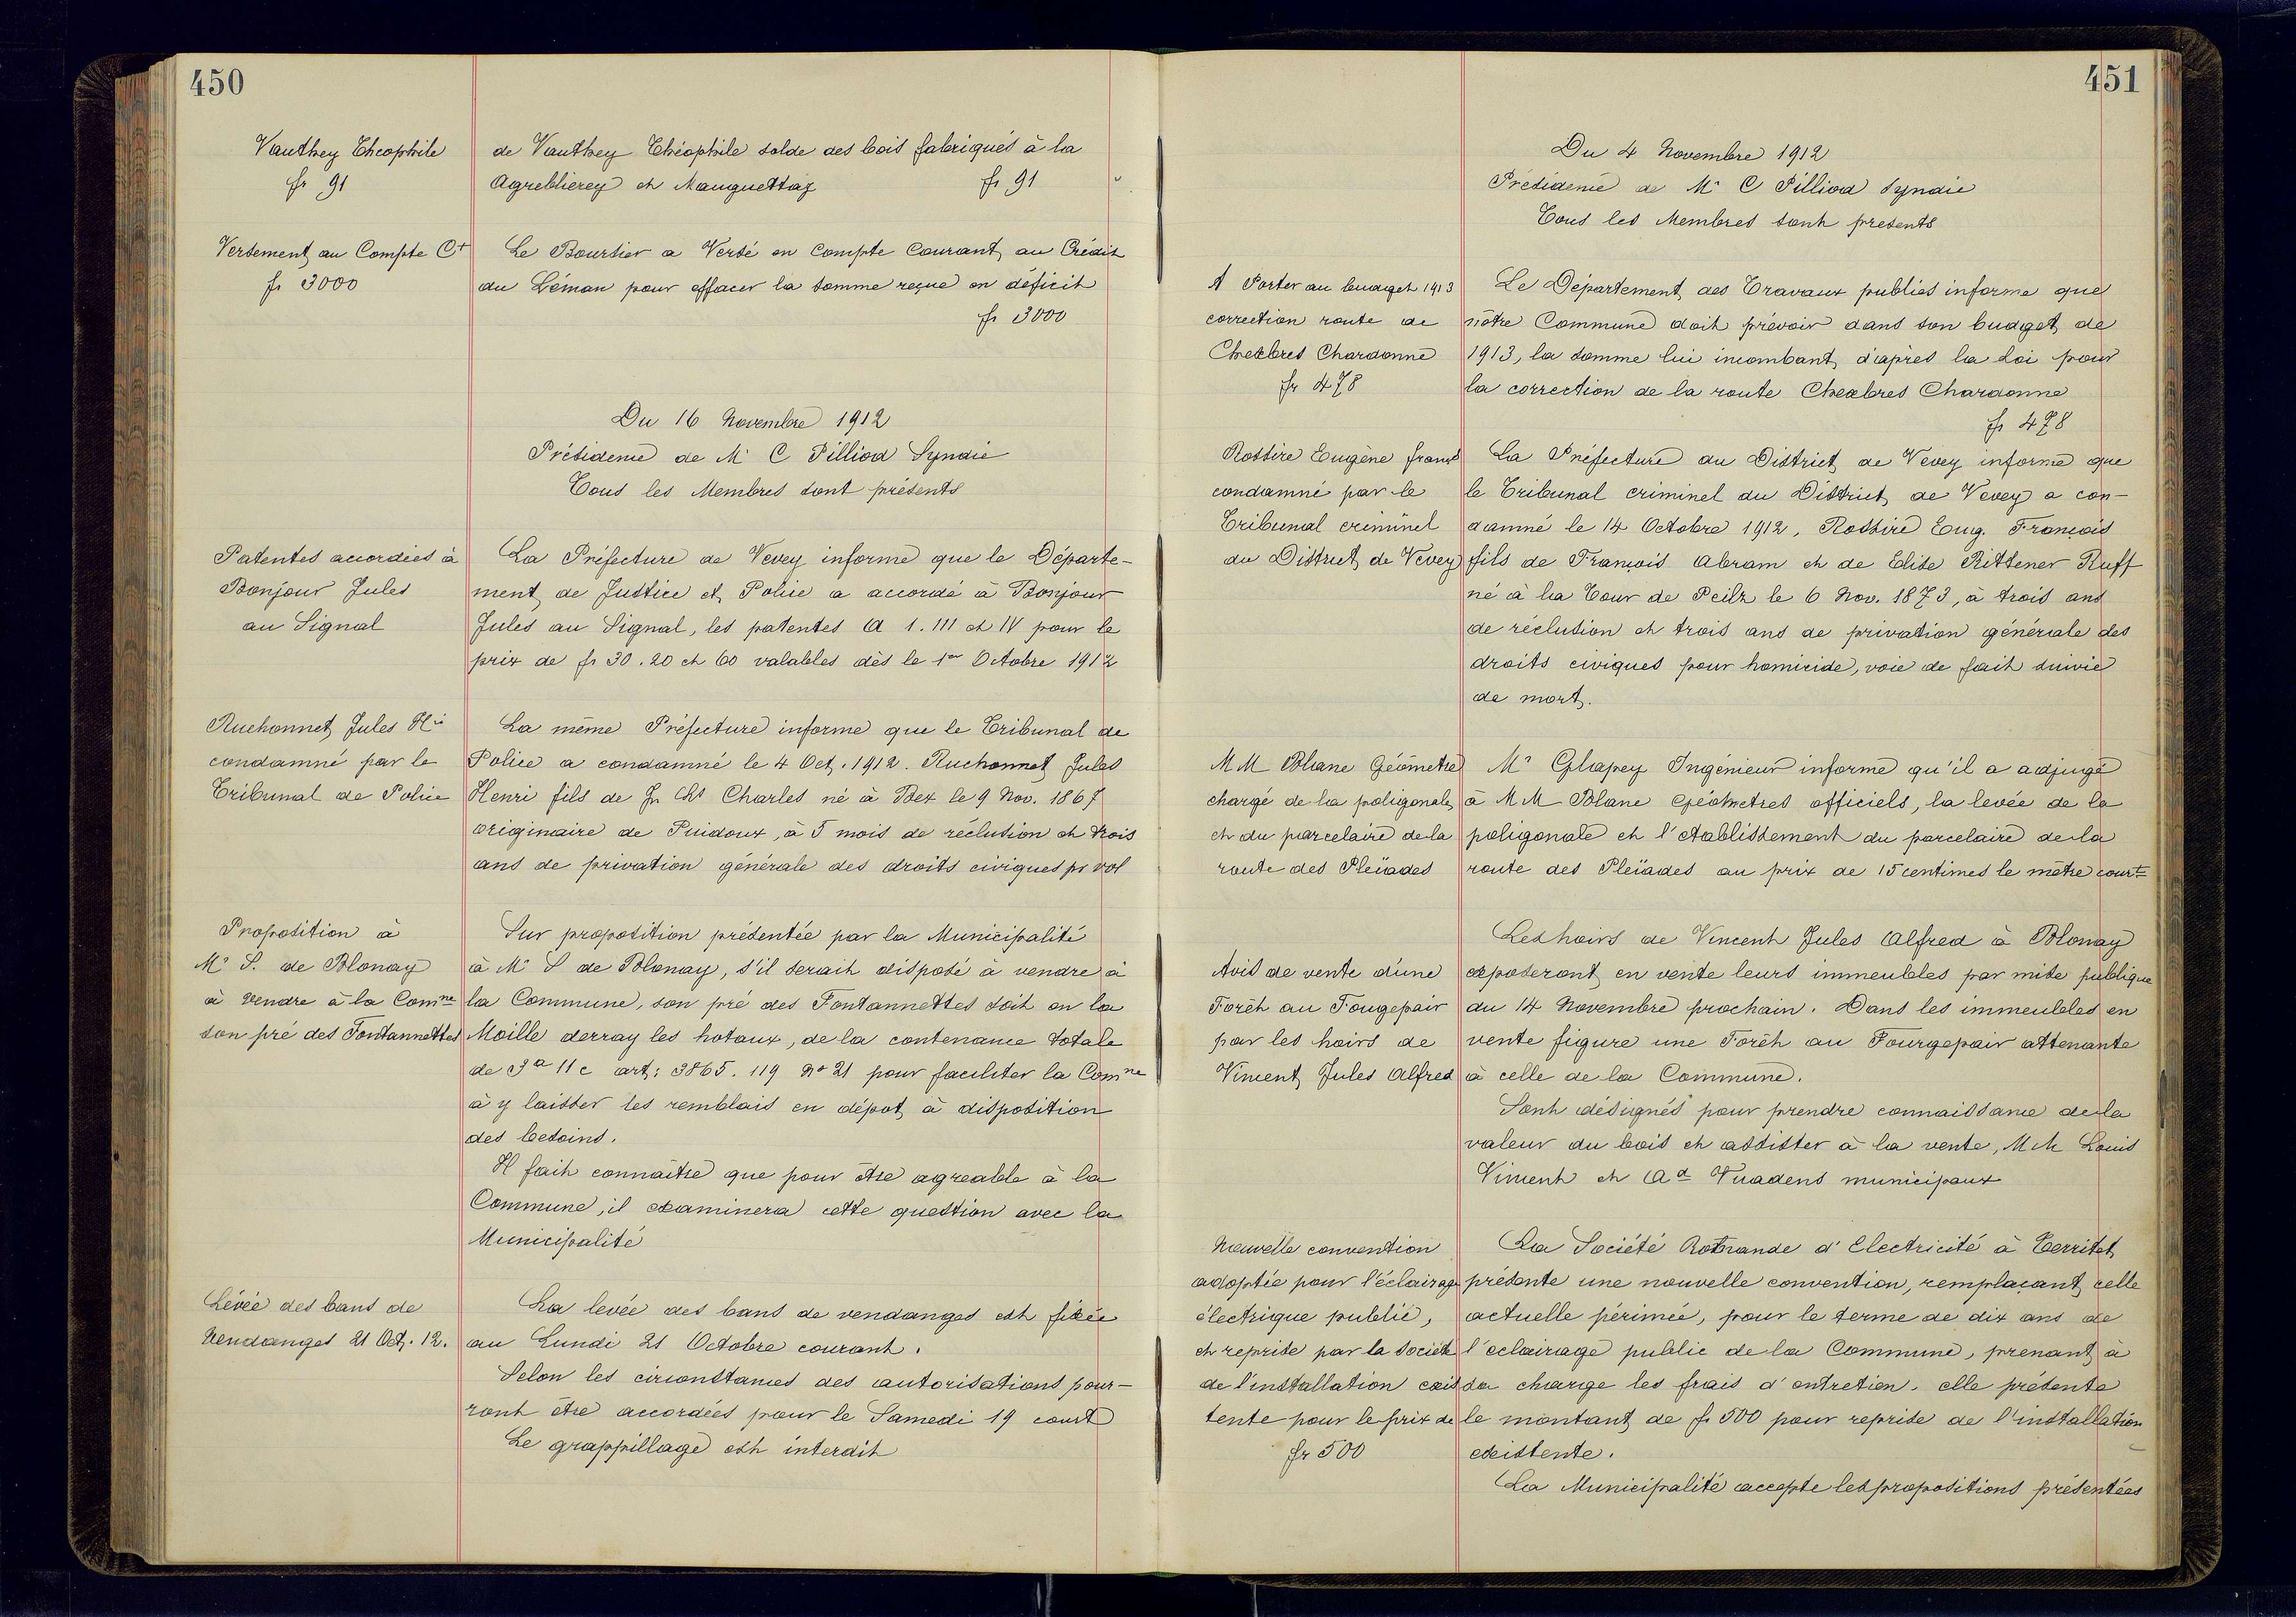 450
Vauthey Theophile
fr 91
de Vauthey Théophile solde des bois fabriqués à la
Agreblierey et Manguettaz fr 91
Versement au Compte Ct
fr 3000
Le Boursier a Versé en Compte Courant au Crédit
du Léman pour effacer la somme reçue en déficit
fr 3000
Du 16 Novembre 1912
Présidence de Mr C Pilliod Syndic
Tous les Membres sont présents
Patentes accordées à
Bonjour Jules
au Signal
La Préfecture de Vevey informe que le Départe-
ment de Justice et Police a accordé à Bonjour
Jules au Signal, les patentes A 1. III et IV pour le
prix de fr 30. 20 et 60 valables dès le 1er Octobre 1912
Ruchonnet Jules Hri
condamné par le
Tribunal de Police
La même Préfecture informe que le Tribunal de
Police a condamné le 4 Oct. 1912. Ruchonnet Jules
Henri fils de Jn Ls Charles né à Bex le 9 Nov. 1867
originaire de Puidoux, à 5 mois de réclusion et trois
ans de privation générale des droits civiques pr vol
Proposition à
Mr S. de Blonay
à vendre à la Comne
son pré des Fontannettes
Sur proposition présentée par la Municipalité
à Mr S de Blonay, s'il serait disposé à vendre à
la Commune, son pré des Fontannettes soit en la
Moille derray les hotaux, de la contenance totale
de 3a 11c art: 3865. 119 No 21 pour faciliter la Comne
à y laisser les remblais en dépot à disposition
des besoins.
Il fait connaître que pour être agreable à la
Commune, il examinera cette question avec la
Municipalité
Lévée des bans de
Vendanges 21 Oct. 12.
La levée des bans de vendanges est fixée
au Lundi 21 Octobre courant.
Selon les circonstances des autorisations pour-
ront être accordées pour le Samedi 19 court
Le grappillage est interdit
451
Du 4 Novembre 1912
Présidence de Mr C Pilliod Syndic
Tous les Membres sont presents
A Porter au budget 1913
correction route de
Chexbres Chardonne
fr 478
Le Département des Travaux publics informe que
nôtre Commune doit prévoir dans son budget de
1913, la somme lui incombant d'après la Loi pour
la correction de la route Chexbres Chardonne
fr 478
Rossire Eugène Franç
condamné par le
Tribunal criminel
du District de Vevey
La Préfecture du District de Vevey informe que
le Tribunal criminel du District de Vevey a con-
damné le 14 Octobre 1912, Rossire Eug. François
fils de François Abram et de Elise Rittener Ruff
né à la Tour de Peilz le 6 Nov. 1873, à trois ans
de réclusion et trois ans de privation générale des
droits civiques pour homicide, voie de fait suivie
de mort.
MM Blanc Géomètre
chargé de la poligonale
et du parcelaire de la
route des Pleïades
Mr Glapey Ingénieur informe qu'il a adjugé
à MM Blanc Géomètres officiels, la levée de la
poligonale et l'etablissement du parcelaire de la
route des Pleïades au prix de 15 centimes le mètre court
Avis de vente d'une
Forêt au Fougepair
par les hoirs de
Vincent Jules Alfred
Les hoirs de Vincent Jules Alfred à Blonay
exposeront en vente leurs immeubles par mise publique
du 14 Novembre prochain. Dans les immeubles en
vente figure une Forêt au Fourgepair attenante
à celle de la Commune.
Sont désignés pour prendre connaissance de la
valeur du bois et assister à la vente, MM Louis
Vincent et Ad Vuadens municipaux
Nouvelle convention
adoptée pour l'éclairage
électrique public,
et reprise par la Société
de l'installation exis
tente pour le prix de
fr 500
La Société Romande d'Electricité à Territet
présente une nouvelle convention, remplaçant celle
actuelle périmée, pour le terme de dix ans de
l'eclairage public de la Commune, prenant à
sa charge les frais d'entretien. elle présente
le montant de fr 500 pour reprise de l'installation
existente.
La Municipalité accepte les propositions présentées